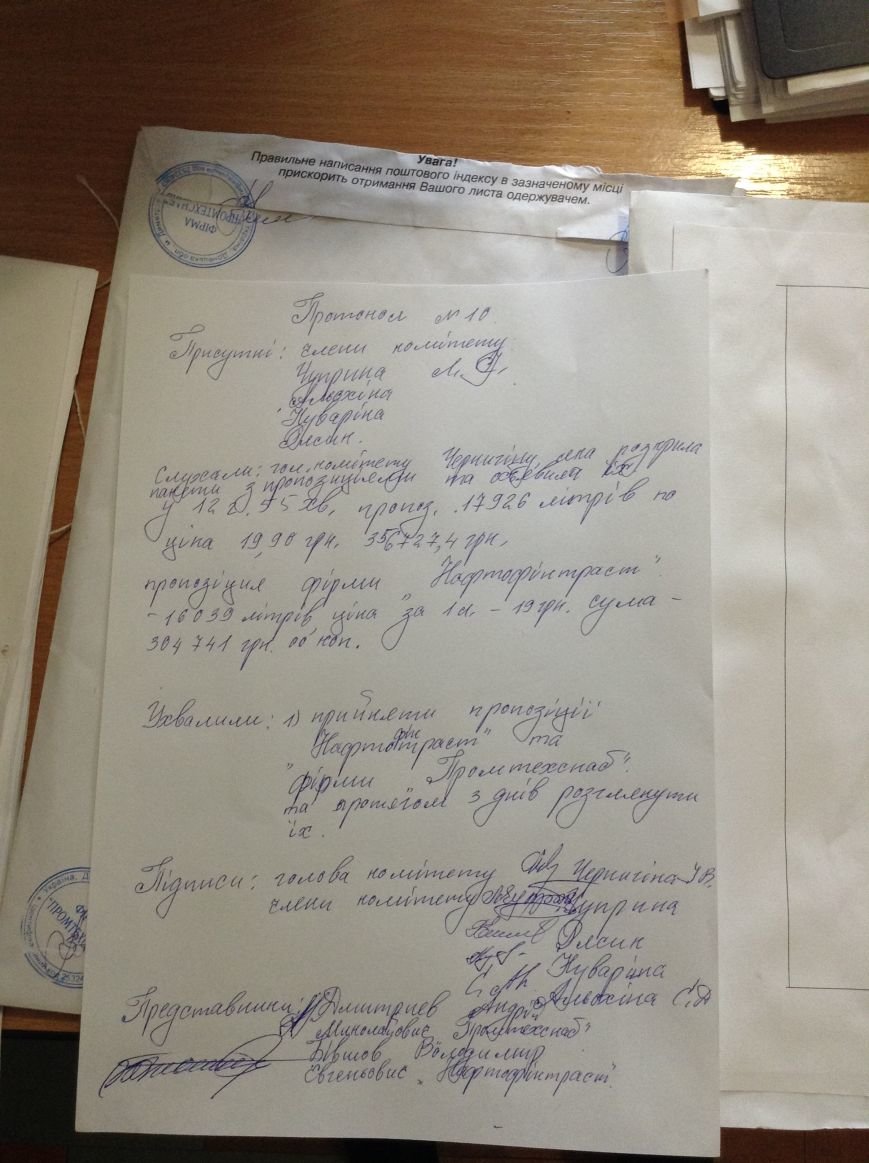 Увага!
Правильне написання поштового індексу в зазначеному місці
прискорить отримання Вашого листа одержувачем.
ФІРМА
ПРОМТЕХСНАБ
Протокол № 10
Присутні: члени комітету
Чуприна Л.
Альохіна
Нуваріна
Дясик.
Слухали: гол. комітету Чернигіну, яка розкрила
пакети з пропозиціями та об'явила їх
у 12 г. 55 хв, пропоз. 17926 літрів по
ціна 19,90 грн. 356727,4 грн,
пропозіция фірми "Нафтофінтраст".
- 16039 літрів ціна за 1л. - 19 грн. сума -
304741 грн. 00 коп.
Ухвалили: 1) прийняти пропозіції
"Нафтофінтраст" та
"фірми Промтехснаб".
та протягом 3 днів розглянути
їх.
Підписи: голова комітету Чернигіна І.В.
члени комітету Чуприна
Дясик
Нуваріна
Альохіна
Представники: Дмитриев Андрій
Миколайович "Промтехснаб"
Бівшов Володимир
Євгеньович "Нафтофінтраст"